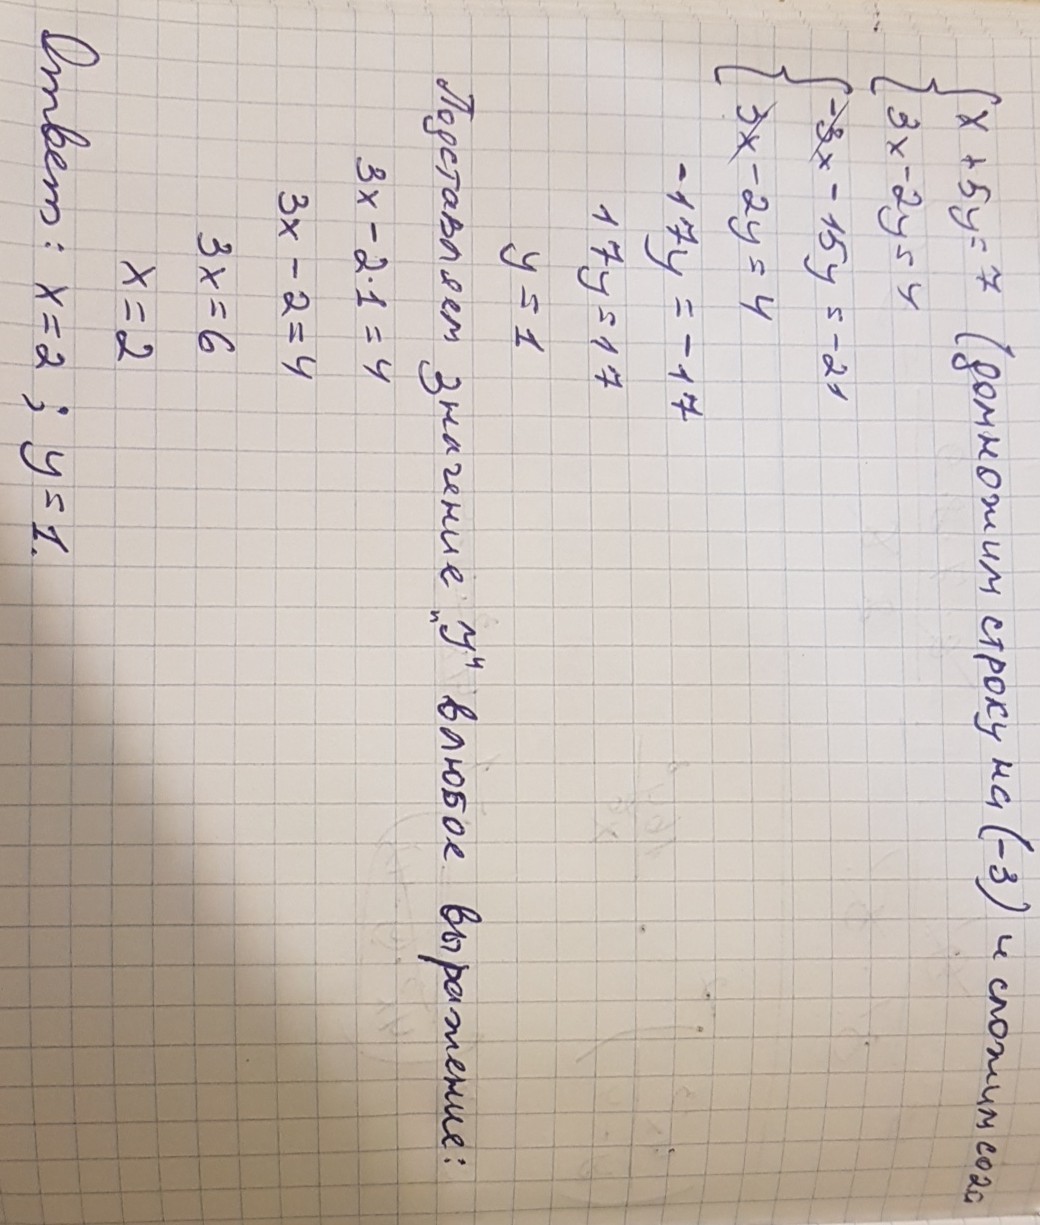 { x + 5y = 7 (домножим строку на (-3) и сложим
{ 3x - 2y = 4
{ -3x - 15y = -21
{ 3x - 2y = 4
-17y = -17
17y = 17
y = 1
Подставляем значение „y“ в любое выражение:
3x - 2·1 = 4
3x - 2 = 4
3x = 6
x = 2
Ответ: x = 2 ; y = 1.